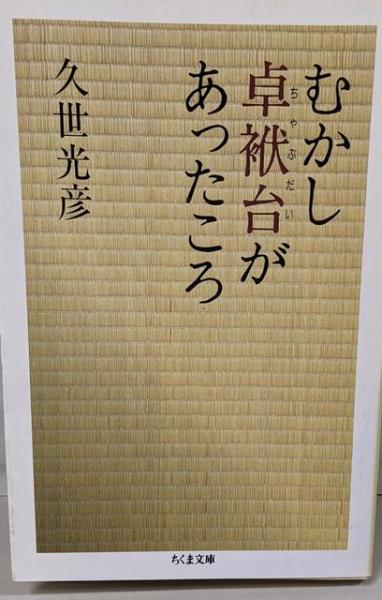 むかし
卓袱台が
ちゃぶだい
あったころ
久世光彦
ちくま文庫